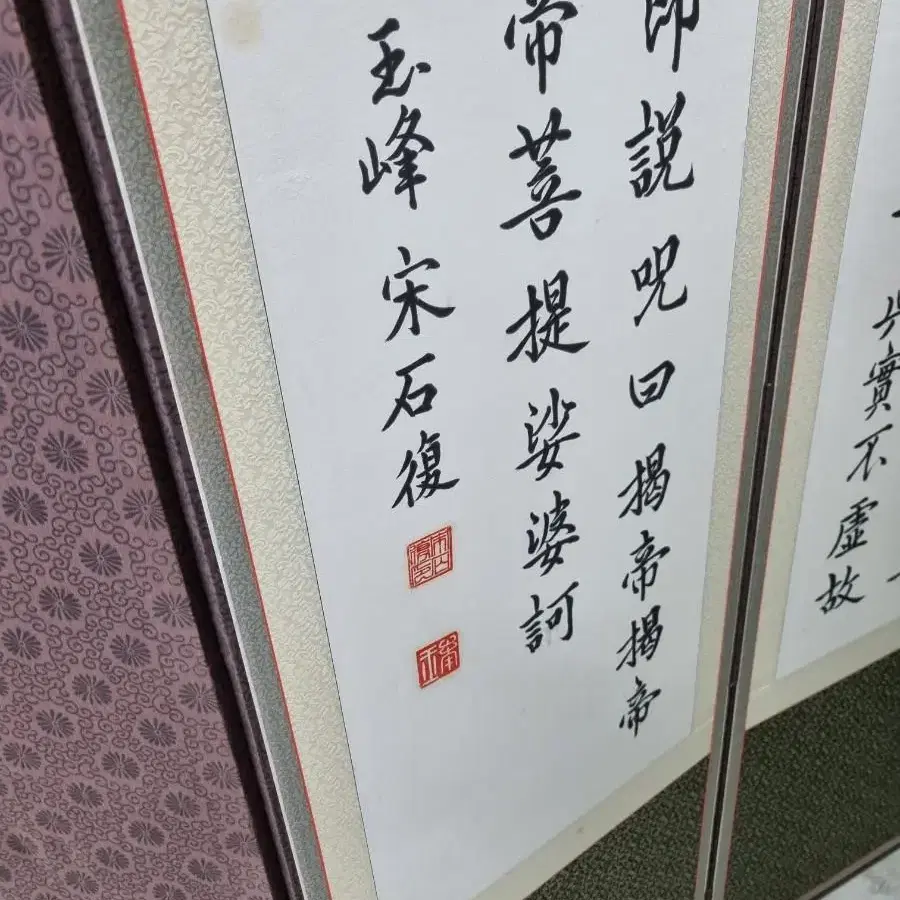 實不虛故
即說呪曰揭帝揭帝
帝菩提娑婆訶
玉峰宋石復